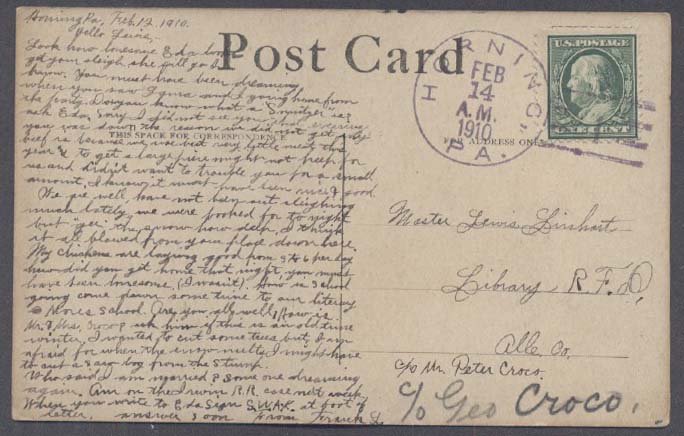 Horning Pa, Feb. 12, 1910.
Hello Lewie,
Look how lonesome Eda looks
get your sleigh she will go I
know. You must have been dreaming
when you saw Irma and I going home from
the party. Do you know what a Snitzel is?
ask Eda. Say I did not see you that evening
you was down the reason we did not get any
beef is because we use but very little meat this
year & to get a large piece might not keep for
us and didn't want to trouble you for a small
amount, I know it must have been nice & good.
We are well have not been out sleighing
much lately we were booked for to night
but "gee" the snow how deep, I think
it all blowed from your place down here.
My Chickens are laying good from 3 to 6 per day
how did you get home that night, you must
have been lonesome, (I wasn't). How is school
going come down some time to our literary
Mores School. Are you all well, How is
Mr. & Mrs. Croco ask him if this is an old time
winter, I wanted to cut some trees but I am
afraid for when the snow melts I might have
to cut a saw log from the stump.
Who said I am married? Some one dreaming
again. Am on the Irwin R.R. case next week.
When you write to Eda sign S.W.A.K. at foot of
letter. answer soon From Frank L.
Post Card
THIS SPACE FOR CORRESPONDENCE
FOR ADDRESS ONLY
HORNING,
FEB
14
A.M.
1910
PA.
U.S. POSTAGE
ONE CENT
Master Lewis Linhart
Library R.F.D.
Alle Co.
c/o Mr. Peter Croco.
c/o Geo Croco.